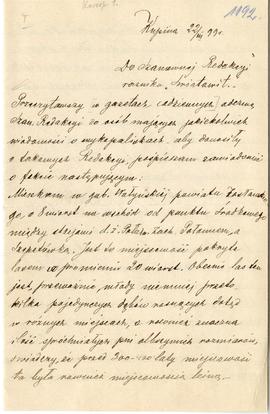 1192.
I
Kupina 22/III 99 r.
Do Szanownej Redakcyi
rocznika „Światowit”.
Przeczytawszy w gazetach codziennych odezwę
Szan. Redakcyi do osób mających jakiekolwiek
wiadomości o wykopaliskach, aby donosiły
o takowych Redakcyi, pospieszam zawiadomić
o fakcie następującym:
Mieszkam w gub. Wołyńskiej powiatu Zasławskie-
go, o 8 wiorst na wschód od punktu środkowego
między stacjami d. ż. Połud. Zach. Połonnem, a
Szepetówką. Jest to miejscowość pokryta
lasem w promieniu 20 wiorst. Obecnie las ten
jest przeważnie młody niemniej przeto
kilka pojedynczych dębów rosnących dotąd
w różnych miejscach, a również znaczna
ilość spróchniałych pni olbrzymich rozmiarów,
świadczy, że przed 300-400 laty miejscowość
ta była również miejscowością leśną.